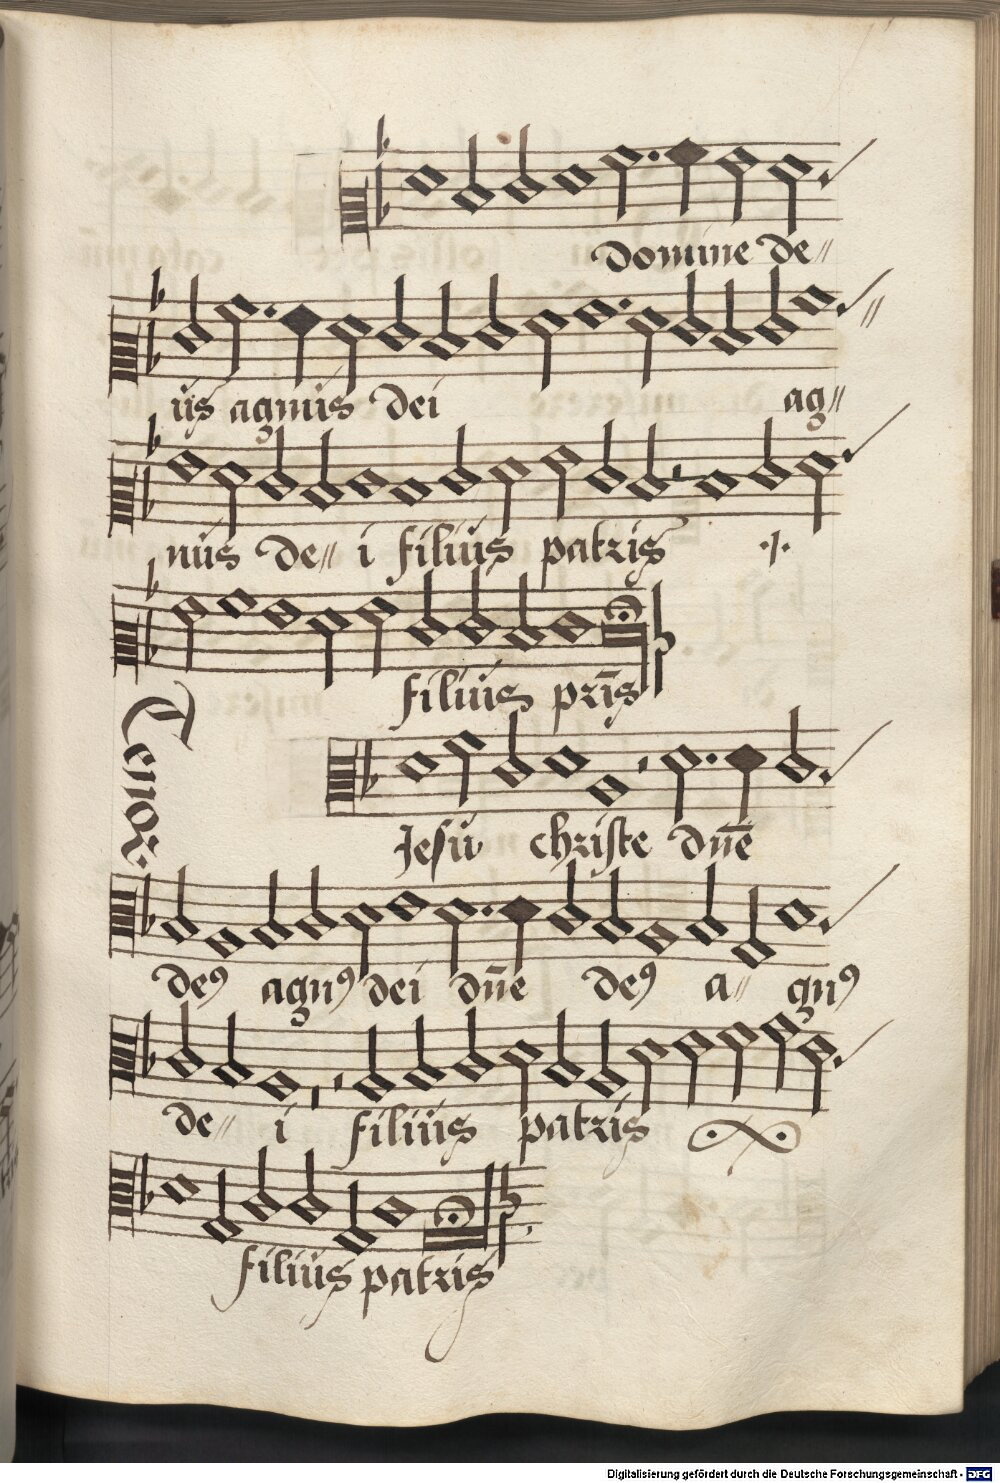 domine de//
us agnus dei ag//
nus de// i filius patris ·/·
filius pr̄is
Tenor.
Jesu christe dn̄e
deꝰ agnꝰ dei dn̄e deꝰ a// gnꝰ
de// i filius patris
filius patris
Digitalisierung gefördert durch die Deutsche Forschungsgemeinschaft - DFG